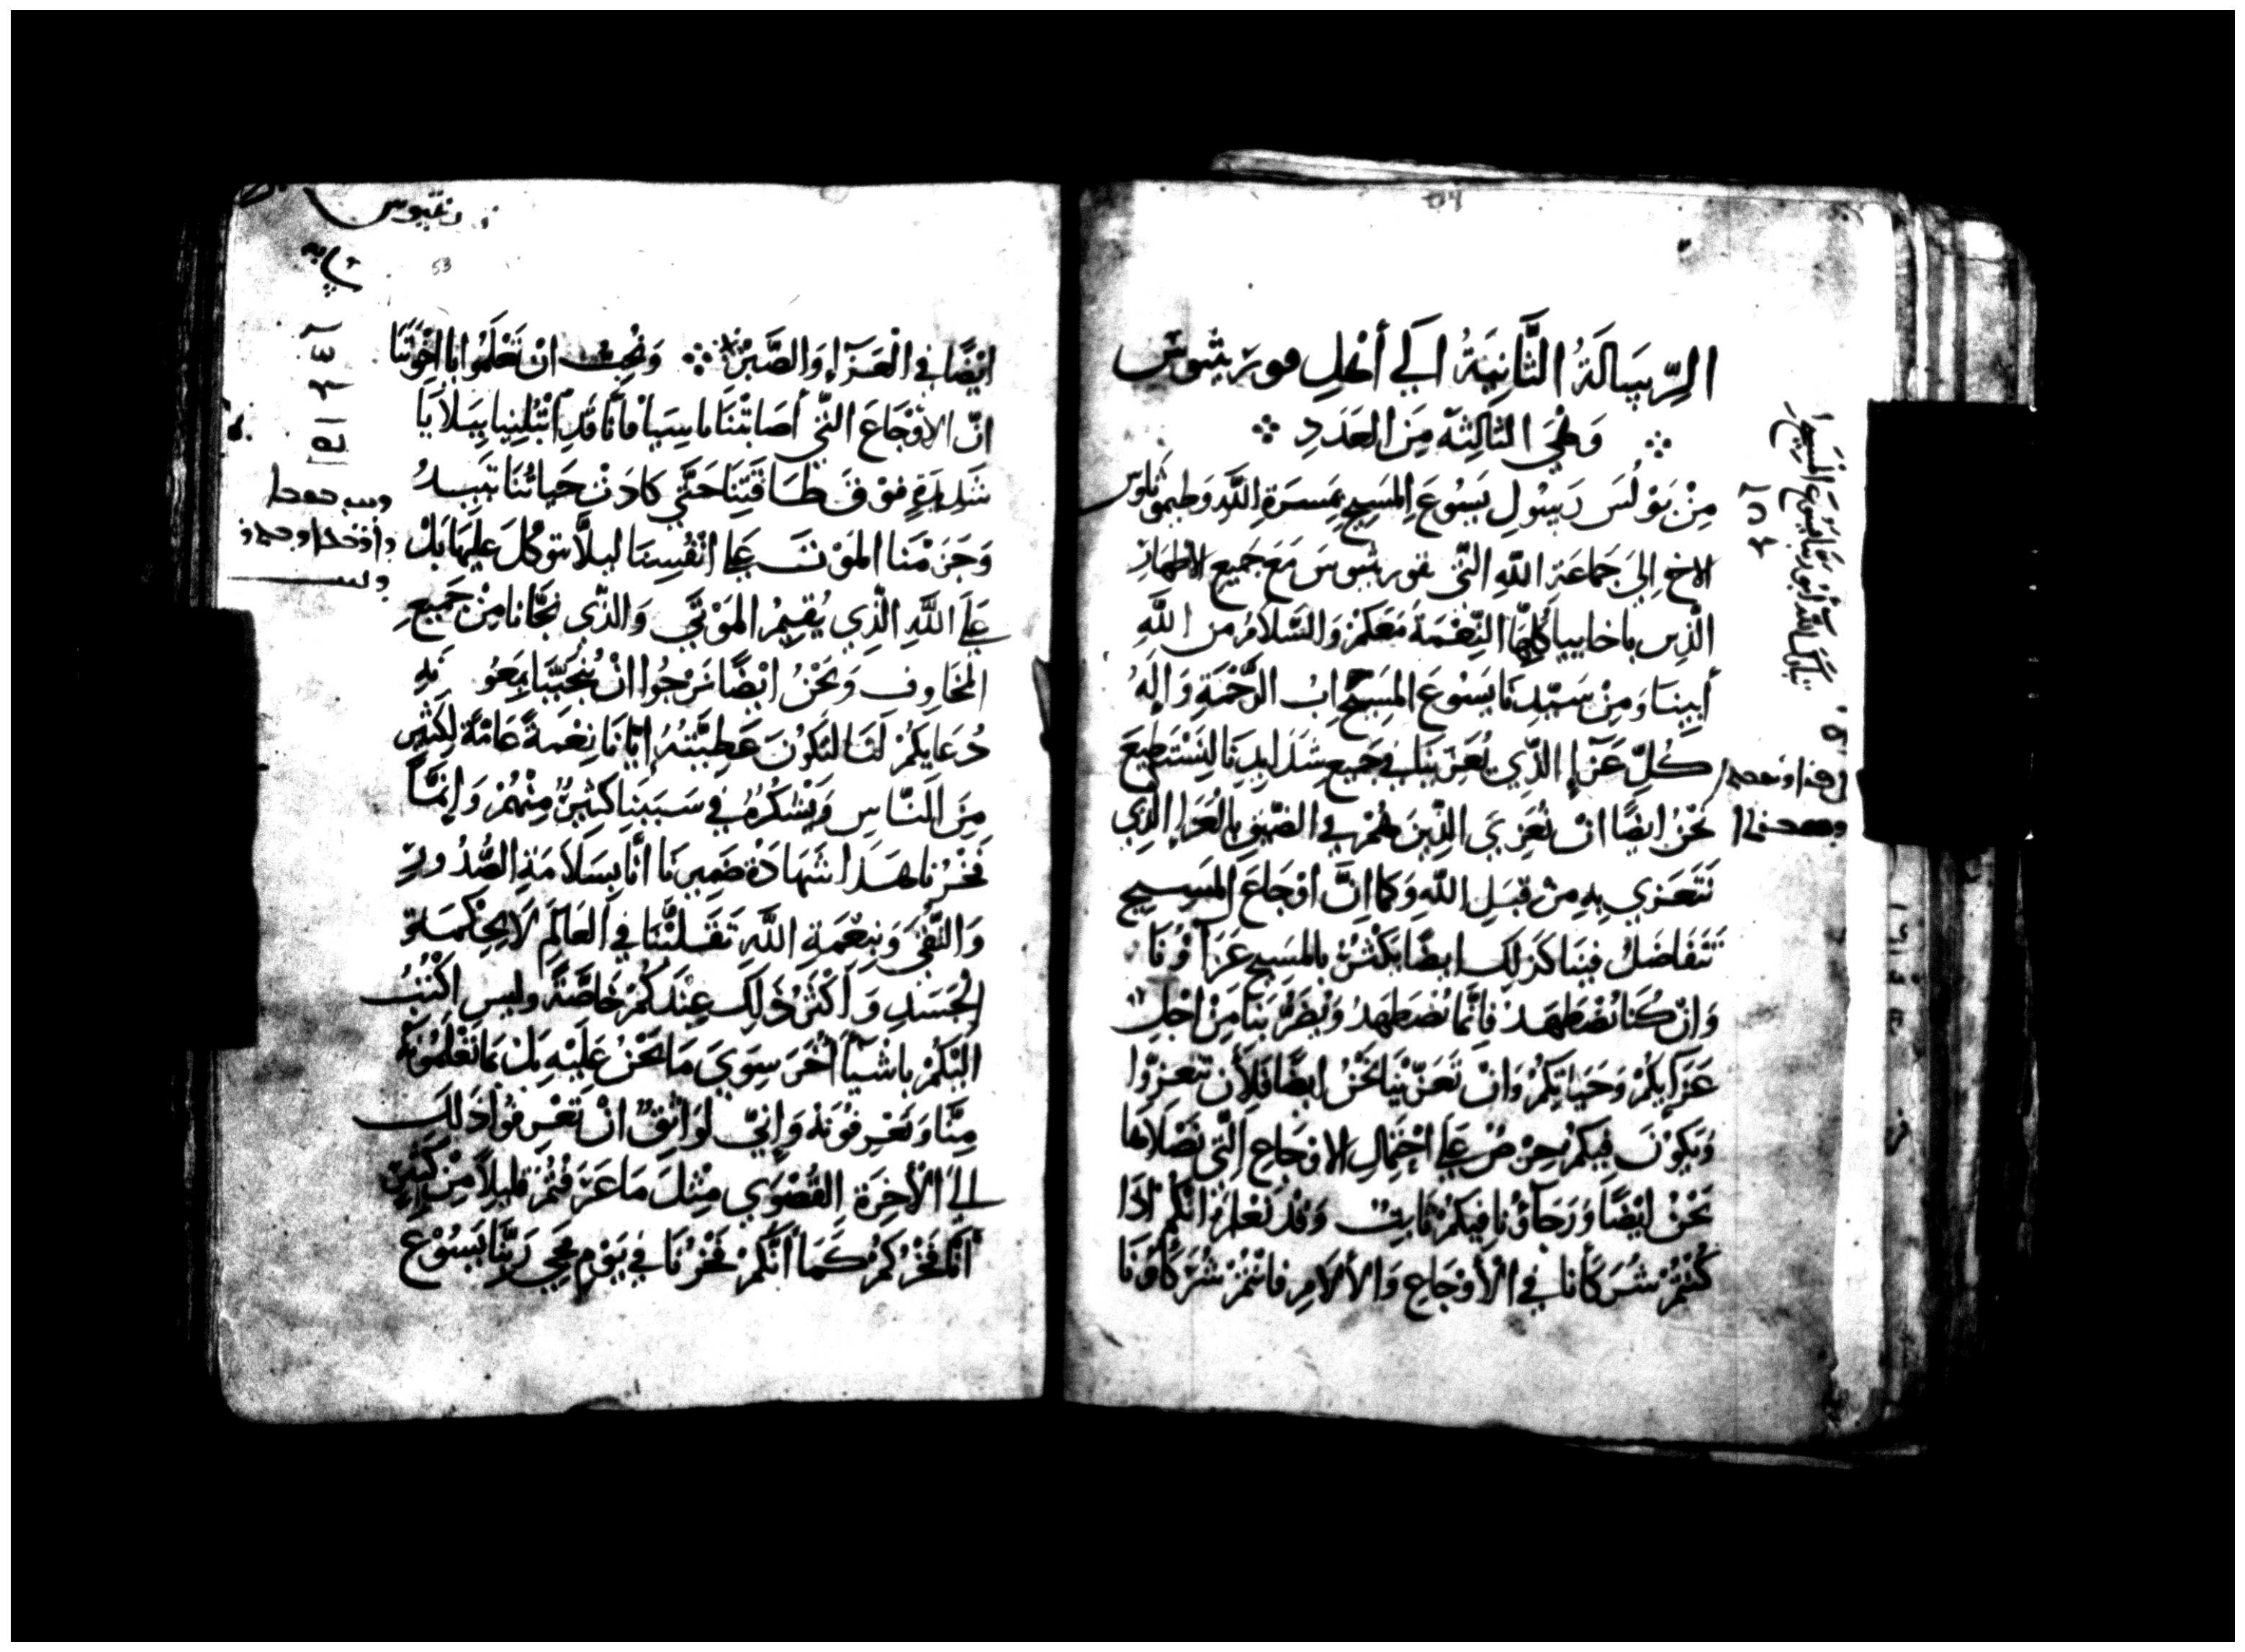 الرِّسَالَةُ الثَّانِيَةُ اِلَى أَهْلِ قورنثيوس
وَهْيَ الثالِثةُ مِنَ العَدَدِ
مِنْ بَوْلُسَ رَسُولِ يَسُوعَ المَسِيحِ بِمَسرَةِ اللَّهِ وَطيموثاوس
الاخ اِلىَ جَمَاعَةِ اللَّهِ التَّى بقورنثيوسَ مَعَ جَمِيعِ الاطهارِ
الّذِين باخاييا كُلِّهَا النِّعْمَةُ مَعَكمْ وَالسَّلَامُ من اللَّهِ
أَبِينَا وَمِنْ سَيِّدِنَا يَسُوعَ المَسِيحِ ابُ الرَّحْمَةِ وَالِهُ
كُلِّ عَزَآءٍ الذِّي يُعَزِينَا فِي جَمِيع شَدَايدِنَا لِنَسْتَطِيعَ
نَحْنُ ايضًا انْ نُعَزِيَ الذِّينَ هُمْ فِي الضّيقِ بِالْعَزَاءِ الذِّي
نَتَعَزي بِهِ مِنْ قِبَلِ اللَّهِ وَكَما اِنَّ اوْجَاعَ المَسِيحِ
تَتَفَاضَلُ فِينَا كَذَلِكَ ايضًا يَكْثُرُ بِالمَسِيحِ عَزَآؤُنَا
وَانْ كُنَا نُضْطَهَدْ فَاِنَّمَا نُضْطَهَدُ وَيُضَرُّ بنَا مِنْ اجْلِ
عَزَايِكُمْ وَحَيَاتِكُمْ وَانْ تَعَزَّيْنَا نَحْنُ ايضًا فَلِأَن تتعزّوا
وَيَكوُنَ فِيكمْ حِرْصٌ عَلَى احْتِمَالِ الاوْجَاعِ الَّتِي نَصْلَاهَا
نَحْنُ ايْضًا وَرَجَآؤُنا فِيكُمْ ثَابِتٌ وَقدْ نَعْلمُ انَّكُم اذَا
كُنْتُمْ شُرَكَأنا فِي الْأَوْجَاعِ وَالْأَلَامِ فانْتُمْ شُرَكَاؤُنَا
53
ايْضًا فِي الْعَزَآءِ وَالصَّبْرِ وَنُحِبُّ انْ تَعْلَمُوا يا اخْوَتَنَا
انّ الاوْجَاعَ التّي أصَابَتْنَا باسِيَا فَأنَّا قَدِ ابْتُلِينِا بِبَلَايَا
شَدِيدَةٍ فوْقَ طَاقَتِنَا حَتَّي كَادَتْ حَيَاتُنَا تَبِيدُ
وَجَزَمْنَا المَوْتَ عَلَى انْفُسِنَا ليلَّا نتوكلَ عليهَا بَلْ
عَلَى اللَّهِ الَّذِي يُقِيمُ المَوْتَي وَالذّي نَجَّانا مِنْ جَمِيعِ
المَخَاوِفِ وَنَحْنُ ايْضًا نَرْجُوا انْ يُنَجِّيَنَا بِمَعُونَهِ
دُعَايكُمْ لَنَا لتَكُونَ عَطِيَّتُهُ ايَّانَا نِعْمَةً عَامّةً لِكَثْيرٍ
مِنَ النَّاسِ وَيَشْكُرُهُ فِي سَبَبِنَا كثِيرٌ مِنْهُمْ وَاِنَّمَا
فَخْرُنا هَذَا شَهَادَةُ ضَمِيرِنَا انَّا بِسَلَامَةِ الصُّدُورِ
وَالنَّقْيِ وَنِعْمَةِ اللَّهِ تَقَلَّبْنَا فِي العَالَمِ لَا بِحِكْمَةِ
الْجَسَدِ وَأكْثَرُ ذَلِكَ عِنْدَكُمْ خَاصَّةً وليس اكْتُبُ
الَيْكُمْ باشْيَآ اُخَرَ سِوَيَ مَا نَحْنُ عَلَيْهِ بَلْ بمَا تَعْلمُونَهُ
مِنَّا وَتَعْرِفُونَهُ وَاِنِّي لوَاثِقٌ انْ تَعْرِفُوا ذَلِكَ
اِلَى الْأخِرَةِ القُصْوَي مِثْلَ مَا عَرَفْتُمْ قَلِيلًا مِنْ كَثِيرٍ
أنَّا فَخْرُكُمْ كَمَا أنَّكُمْ فَخْرُنَا فِي يَوْمِ مَجِي رَبِّنَا يَسُوْعَ